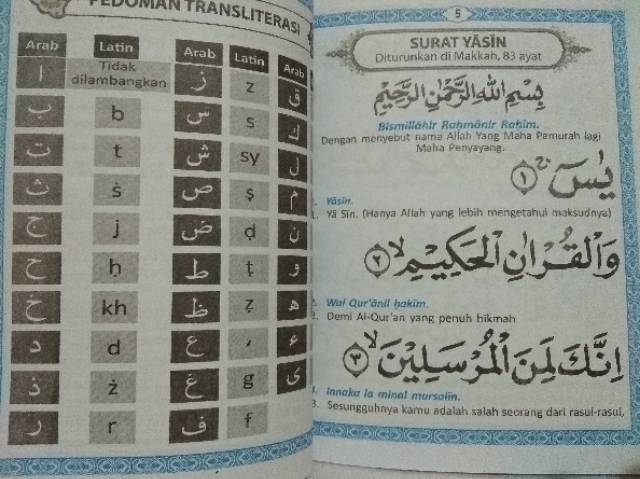 PEDOMAN TRANSLITERASI
Arab Latin Arab Latin Arab
ا Tidak dilambangkan ز z ق
ب b س s ك
ت t ش sy ل
ث ṡ ص ṣ م
ج j ض ḍ ن
ح ḥ ط ṭ و
خ kh ظ ẓ ه
د d ع ‘ ء
ذ ż غ g ى
ر r ف f
5
SURAT YĀSĪN
Diturunkan di Makkah, 83 ayat
بِسْمِ اللهِ الرَّحْمٰنِ الرَّحِيْمِ
Bismillāhir Raḥmānir Raḥīm.
Dengan menyebut nama Allah Yang Maha Pemurah lagi
Maha Penyayang.
يٰسۤ ۚ ١
1. Yāsīn.
1. Yā Sīn. (Hanya Allah yang lebih mengetahui maksudnya)
وَالْقُرْاٰنِ الْحَكِيْمِۙ ٢
2. Wal Qur'ānil ḥakīm.
2. Demi Al-Qur'an yang penuh hikmah
اِنَّكَ لَمِنَ الْمُرْسَلِيْنَۙ ٣
3. Innaka la minal mursalīn.
3. Sesungguhnya kamu adalah salah seorang dari rasul-rasul,